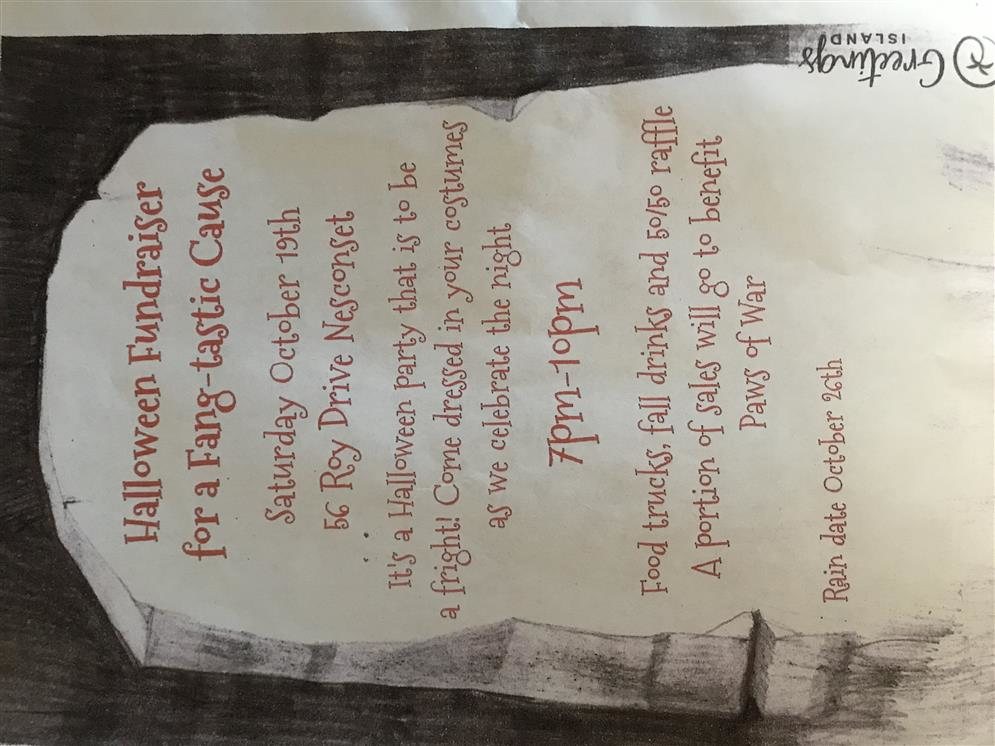 Halloween Fundraiser
for a Fang-tastic Cause
Saturday October 19th
56 Roy Drive Nesconset
It's a Halloween party that is to be
a fright! Come dressed in your costumes
as we celebrate the night
7pm-10pm
Food trucks, fall drinks and 50/50 raffle
A portion of sales will go to benefit
Paws of War
Rain date October 26th
Greetings
ISLAND